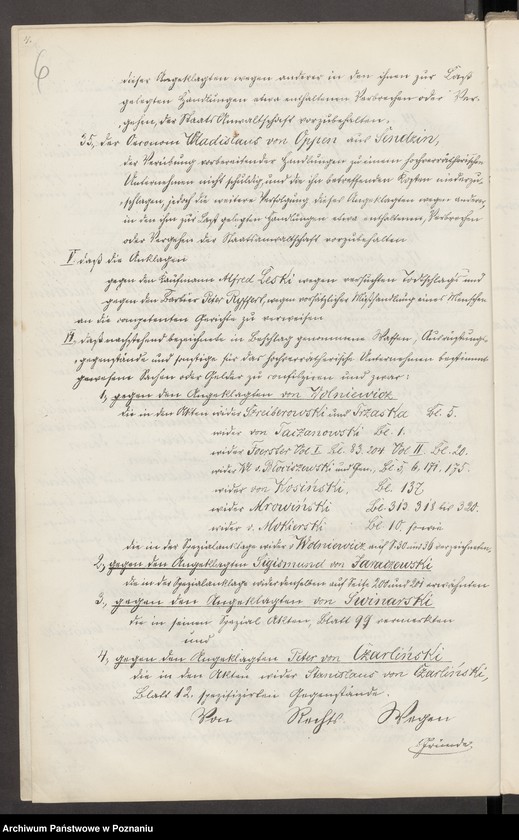 6
dieser Angeklagten wegen anderer in den ihnen zur Last
gelegten Handlungen etwa enthaltenen Verbrechen oder Ver-
gehen, der Staats Anwaltschaft vorzubehalten.
35, der Oeconom Wladislaus von Oppen aus Sendzin,
der Verübung vorbereitender Handlungen zu einem hochverrätherischen
Unternehmen nicht schuldig und die ihn betreffenden Kosten niederzu-
schlagen, jedoch die weitere Verfolgung dieses Angeklagten wegen anderer,
in den ihm zur Last gelegten Handlungen etwa enthaltenen, Verbrechen
oder Vergehen der Staatsanwaltschaft vorzubehalten
V. daß die Anklagen
gegen den Kaufmann Alfred Leski wegen versuchten Todtschlags und
gegen den Peter wegen vorsätzlicher Mißhandlung eines Menschen
an die competenten Gerichte zu verweisen
VI. daß nachstehend bezeichnete in Beschlag genommene Waffen, Ausrüstungs-
gegenstände und sonstige für das hochverrätherische Unternehmen bestimmt
gewesene Sachen oder Gelder zu confisziren und zwar:
1, gegen den Angeklagten von Wolniewicz
die in den Akten wider Skreiberowski und Trzaska Bl. 5.
wider von Taczanowski Bl. 1.
wider Foerster Vol I. Bl. 83. 204 Vol II. Bl. 20.
wider W. v. und Gen., Bl. 5, 6, 171. 175.
wider von Kosiński, Bl. 137
wider Mrowiński Bl. 313 318 bis 320.
wider v. Mokierski Bl. 10. sowie
die in der Spezialanklage wider v Wolniewicz auf S. 30 und 36 verzeichneten,
2, gegen den Angeklagten Sigismund von Jaraczewski
die in der Spezialanklage wider denselben auf Seite 200 und 201 erwähnten
3, gegen den Angeklagten von Swinarski
die in seinen Spezial Akten, Blatt 99 vermerkten
und
4, gegen den Angeklagten Peter von Czarliński
die in den Akten wider Stanislaus von Czarliński,
Blatt 12. spezifizirten Gegenstände.
Von Rechts Wegen
Gründe.
Archiwum Państwowe w Poznaniu